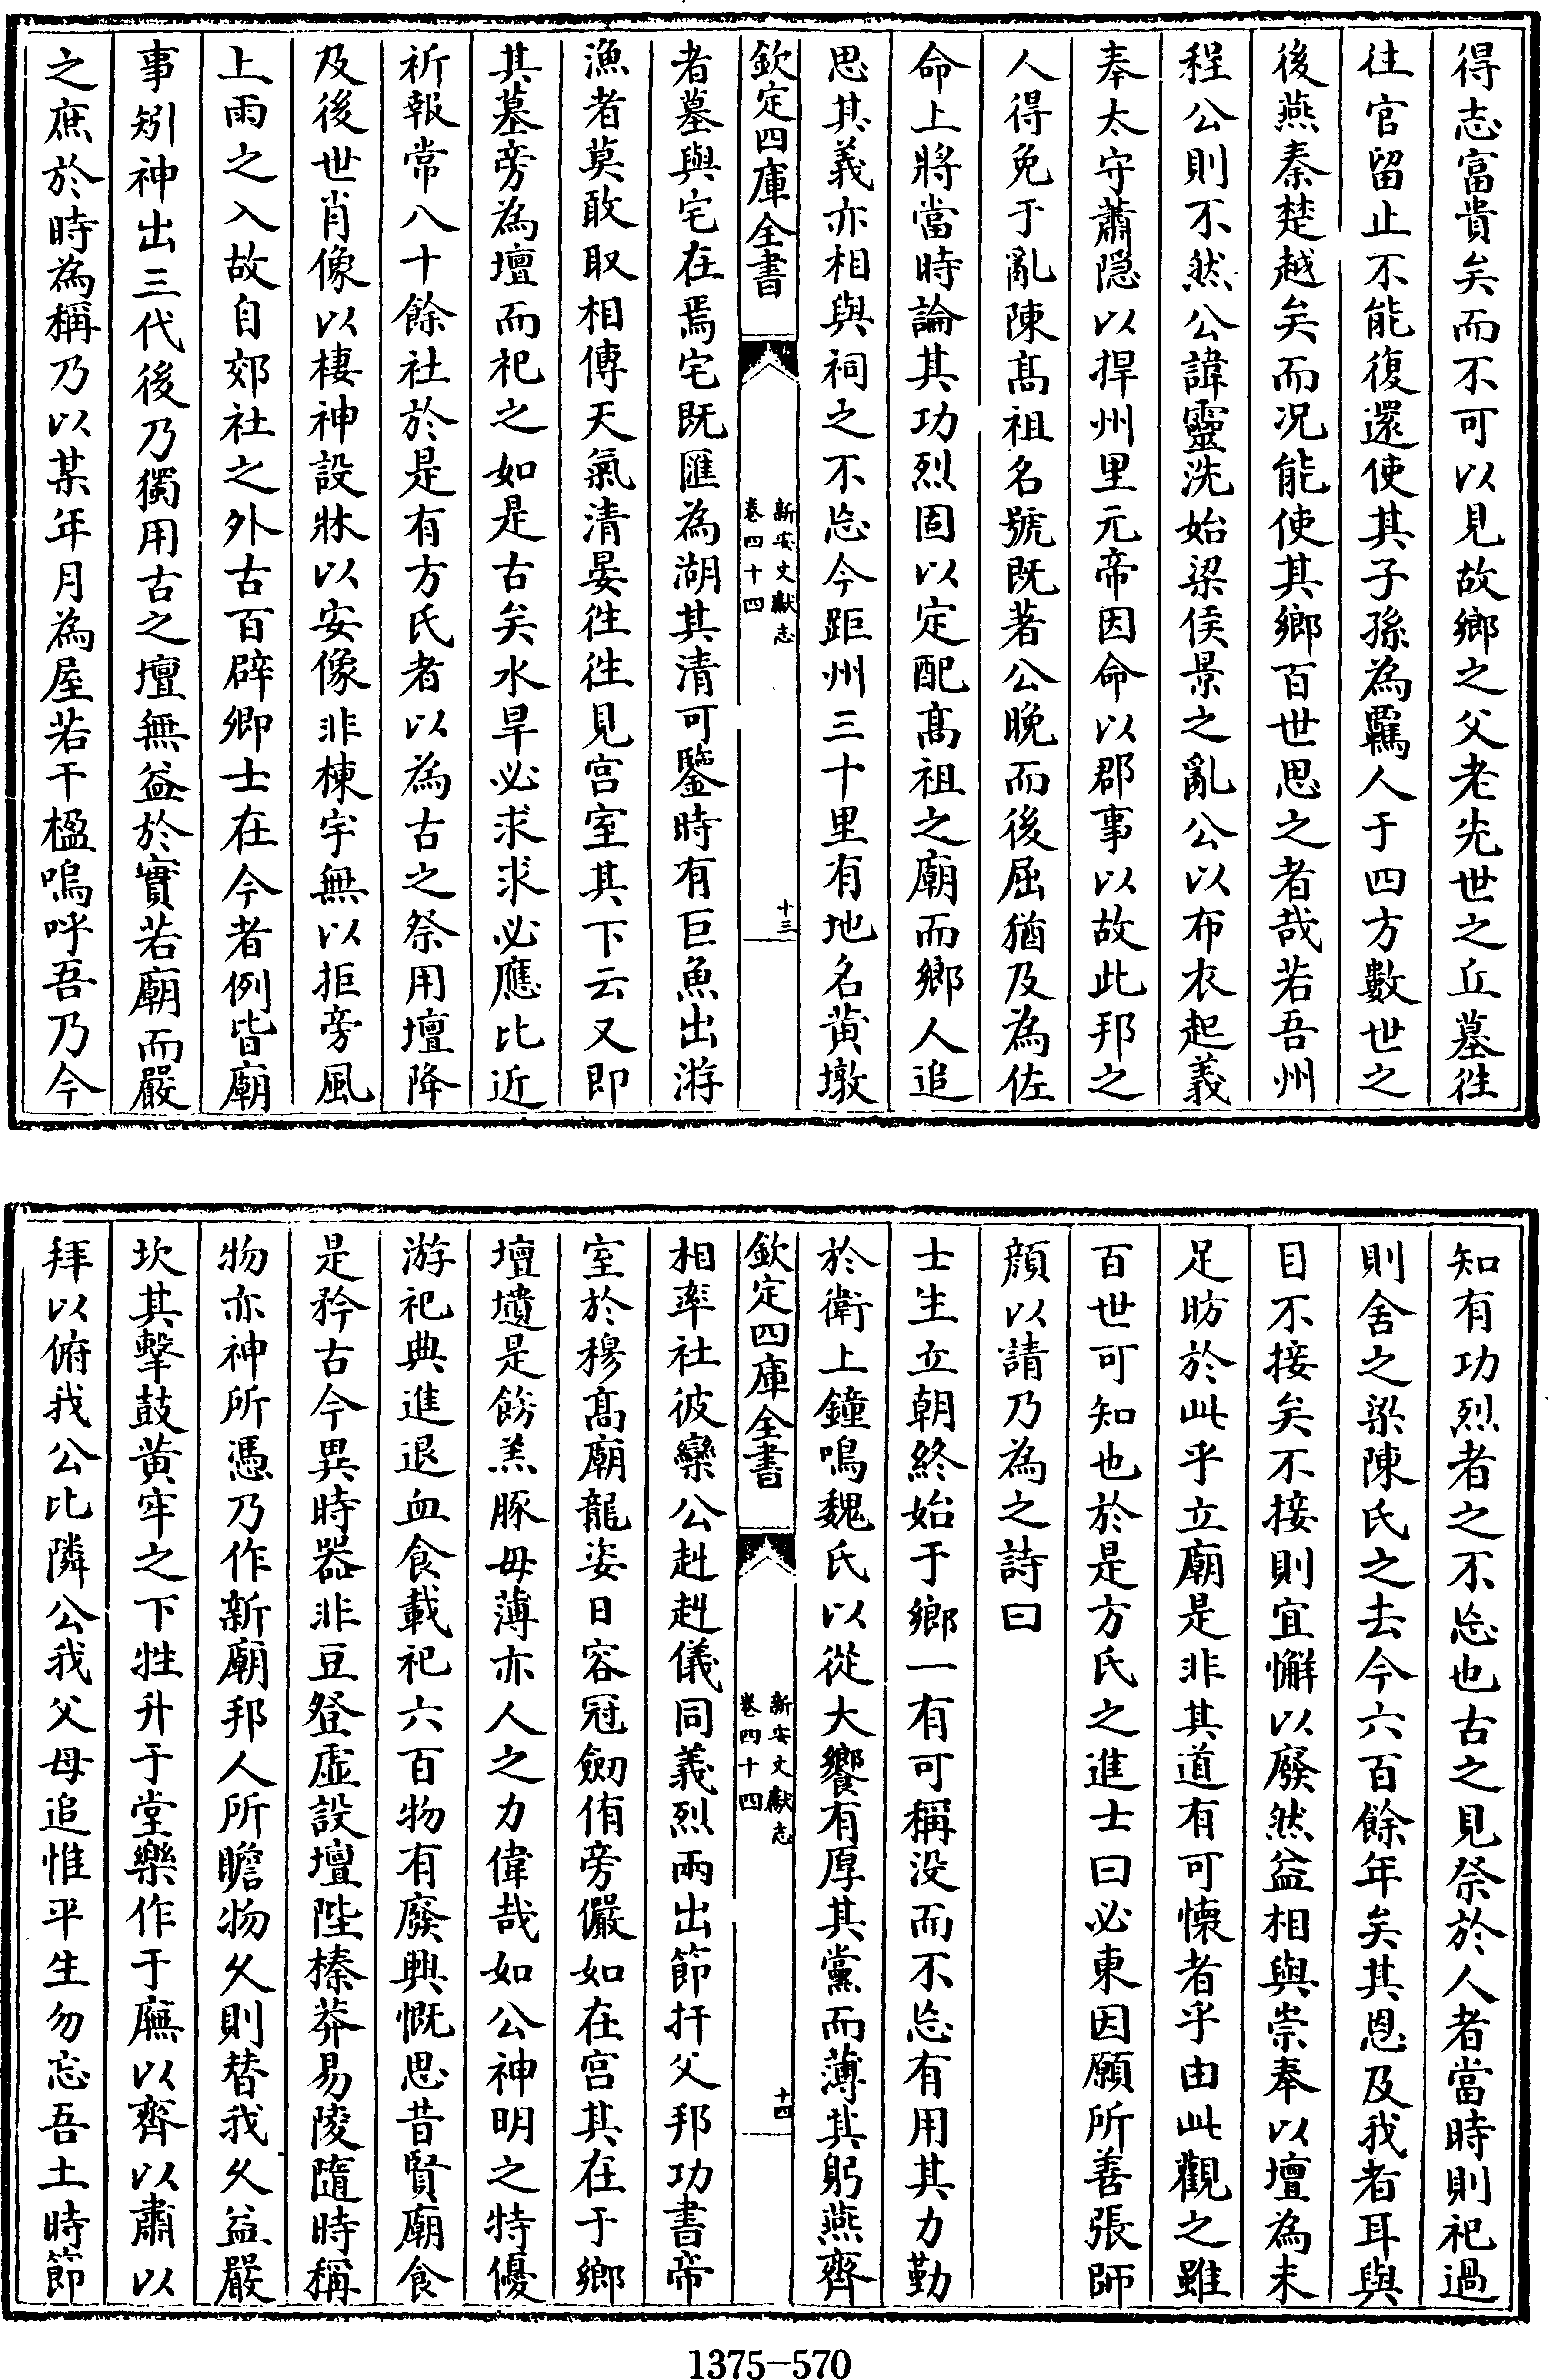 得志富貴矣而不可以見故鄉之父老先世之丘墓徃
往官留止不能復還使其子孫為羈人于四方數世之
後燕秦楚越矣而况能使其鄉百世思之者哉若吾州
程公則不然公諱靈洗始梁侯景之亂公以布衣起義
奉太守蕭隠以捍州里元帝因命以郡事以故此邦之
人得免于亂陳髙祖名號既著公晚而後屈猶及為佐
命上將當時論其功烈固以定配髙祖之廟而鄉人追
思其義亦相與祠之不忘今距州三十里有地名黄墩
欽定四庫全書
新安文獻志
卷四十四
十三
者墓與宅在焉宅既匯為湖其清可鑒時有巨魚出游
漁者莫敢取相傳天氣清晏徃徃見宫室其下云又即
其墓旁為壇而祀之如是古矣水旱必求求必應比近
祈報常八十餘社於是有方氏者以為古之祭用壇降
及後世肖像以棲神設牀以安像非棟宇無以拒旁風
上雨之入故自郊社之外古百辟卿士在今者例皆廟
事矧神出三代後乃獨用古之壇無益於實若廟而嚴
之庶於時為稱乃以某年月為屋若干楹嗚呼吾乃今
知有功烈者之不忘也古之見祭於人者當時則祀過
則舍之梁陳氏之去今六百餘年矣其恩及我者耳與
目不接矣不接則宜懈以廢然益相與崇奉以壇為未
足昉於此乎立廟是非其道有可懐者乎由此觀之雖
百世可知也於是方氏之進士曰必東因願所善張師
顔以請乃為之詩曰
士生立朝終始于鄉一有可稱没而不忘有用其力勤
於衛上鐘鳴魏氏以從大饗有厚其黨而薄其躬燕齊
欽定四庫全書
新安文獻志
卷四十四
十四
相率社彼欒公赳赳儀同義烈兩出節扞父邦功書帝
室於穆髙廟龍姿日容冠劒侑旁儼如在宫其在于鄉
壇墳是飭羔豚毋薄亦人之力偉哉如公神明之特優
游祀典進退血食載祀六百物有廢興慨思昔賢廟食
是矜古今異時器非豆登虚設壇陛榛莽易陵隨時稱
物亦神所憑乃作新廟邦人所瞻物久則替我久益嚴
坎其擊鼓黄牢之下牲升于堂樂作于廡以齊以肅以
拜以俯我公比隣公我父母追惟平生勿忘吾土時節
1375-570